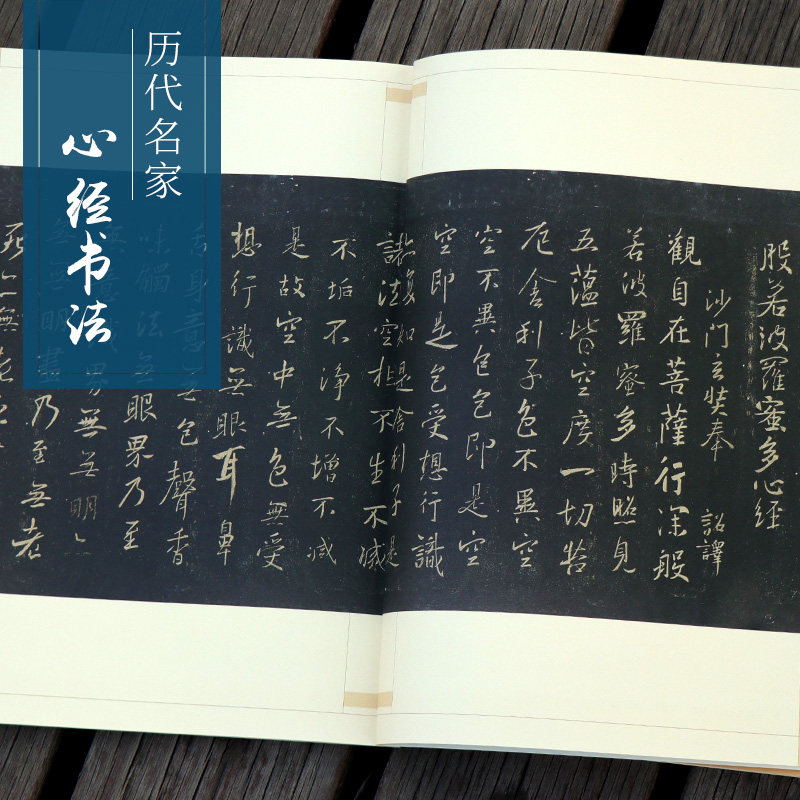 历代名家
心经书法
般若波羅蜜多心経
沙門玄奘奉 詔譯
觀自在菩薩行深般
若波羅蜜多時照見
五蘊皆空度一切苦
厄舍利子色不異空
空不異色色即是空
空即是色受想行識
亦復如是舍利子是
諸法空相不生不滅
不垢不淨不增不減
是故空中無色無受
想行識無眼耳鼻
舌身意無色聲香
味觸法無眼界乃至
無意識界無無明亦
無無明盡乃至無老
死亦無老